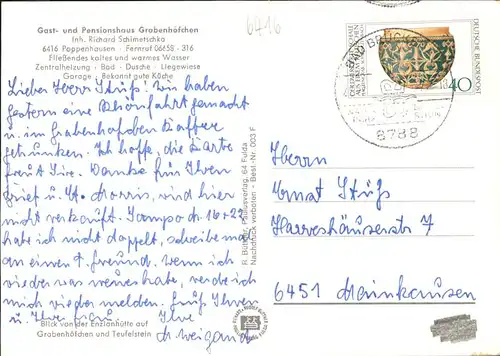 6416
Gast- und Pensionshaus Grabenhöfchen
Inh. Richard Schimetschka
6416 Poppenhausen · Fernruf 06658 - 316
Fließendes kaltes und warmes Wasser
Zentralheizung - Bad - Dusche - Liegewiese
Garage · Bekannt gute Küche
Lieber Herr Stüß! Wir haben
gestern eine Rhönfahrt gemacht
u. im Grabenhöfchen Kaffee
getrunken. Ich hoffe, die Karte
freut Sie. Danke für Ihren
Brief u. St. Morris, sind hier
nicht verkauft. 16 + 22
habe ich nicht doppelt, schreibe mal
an einen Freund. Wenn ich
wieder was neues habe, werde ich
mich wieder melden. Ihnen
u. Ihrer Frau Ihre
Weigand
Blick von der Enzianhütte auf
Grabenhöfchen und Teufelstein
64 Fulda
Nachdruck verboten - Best.-Nr. 003 F
DEUTSCHE BUNDESPOST
40
BAD BRÜCKENAU
8788
Herrn
Ernst Stüß
Harreshäuserstr 7
6451 Mainhausen